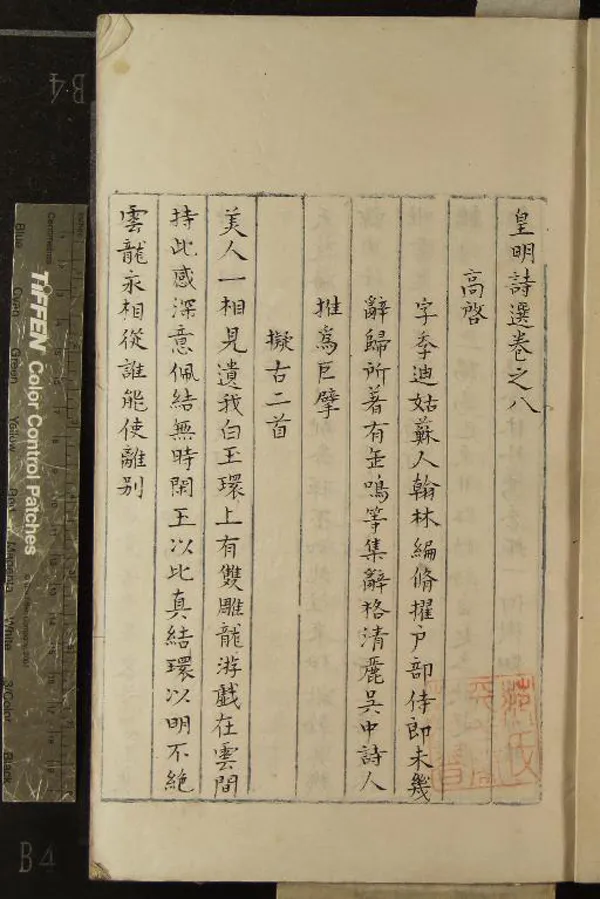 皇明詩選卷之八
高啓
字季迪姑蘇人翰林編脩擢户部侍郎未幾
辭歸所著有缶鳴等集辭格清麗吳中詩人
推爲巨擘
擬古二首
美人一相見遺我白玉環上有雙雕龍游戲在雲間
持此感深意佩結無時閑玉以比真結環以明不絶
雲龍永相從誰能使離别
B4
B4
TIFFEN Color Control Patches
Centimetres
Blue
Cyan
Green
Yellow
Red
Magenta
White
3/Color
Black